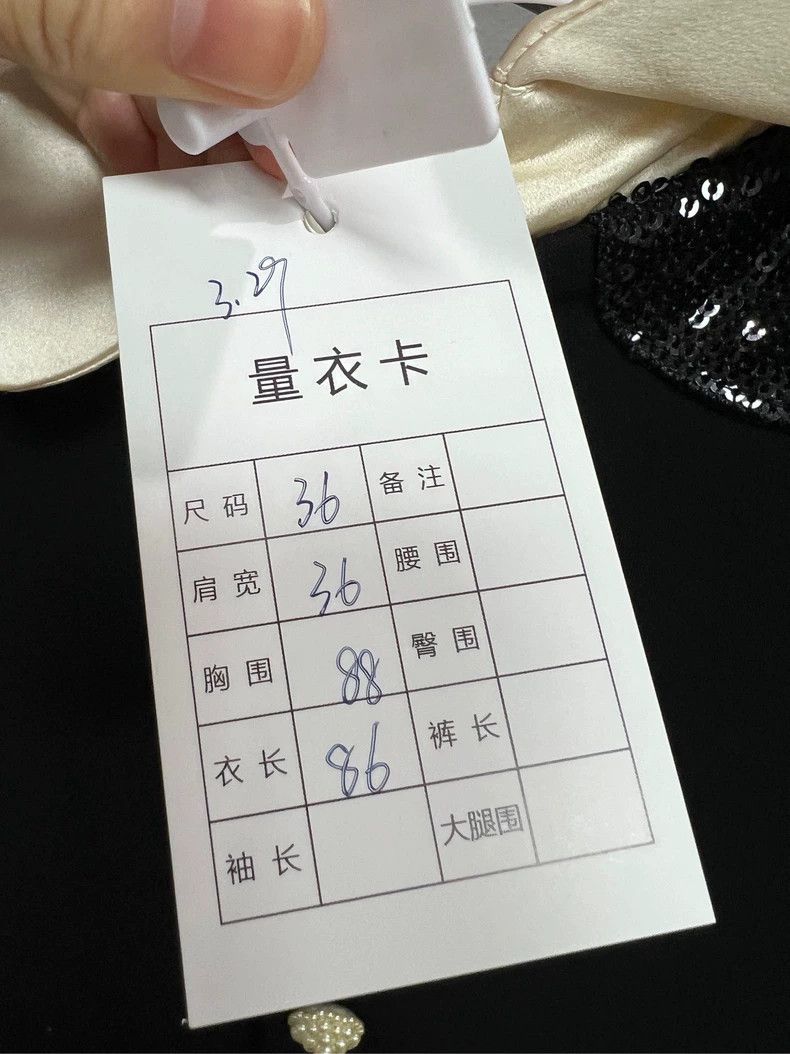 3.29
量衣卡
尺码 36 备注
肩宽 36 腰围
胸围 88 臀围
衣长 86 裤长
袖长 大腿围